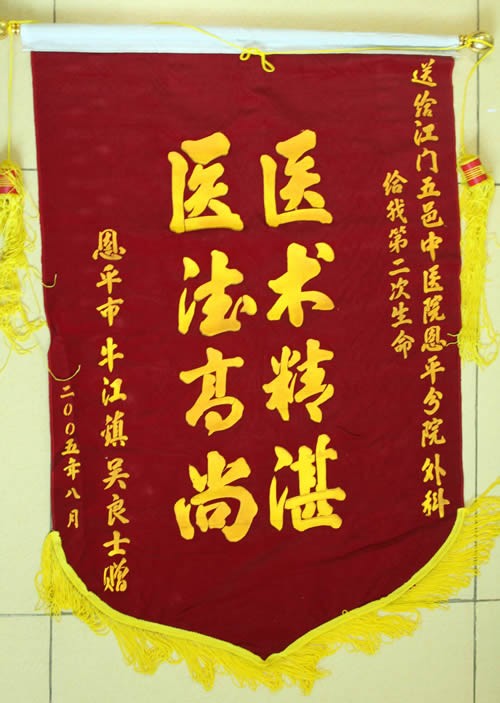 送给江门五邑中医院恩平分院外科
给我第二次生命
医术精湛
医法高尚
恩平市牛江镇吴良士赠
二00五年八月